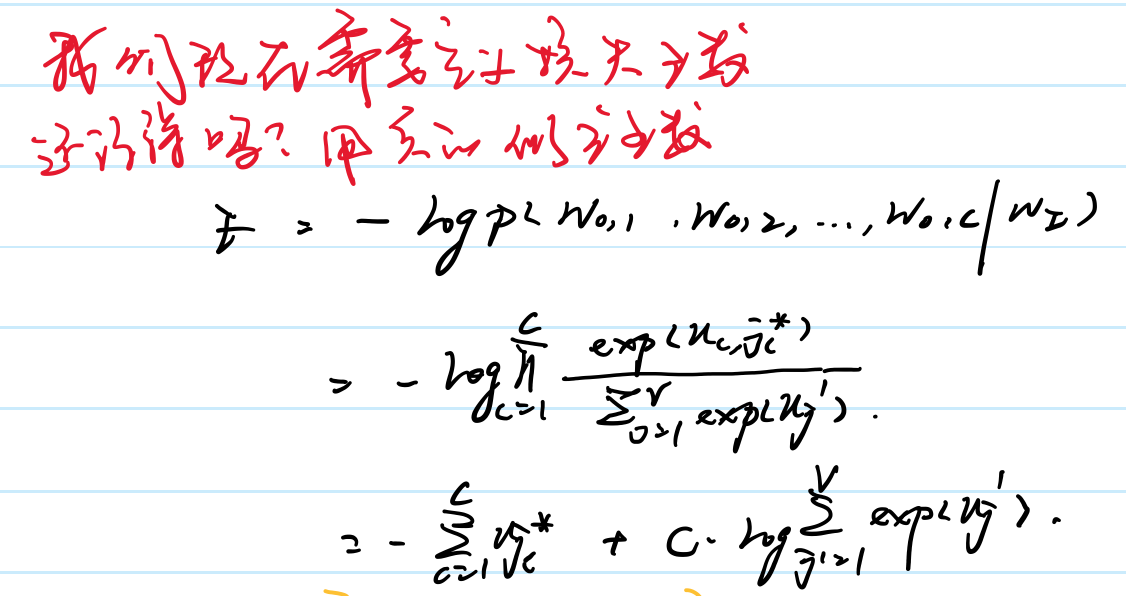 我们现在需要定义损失函数
还记得吗？用交叉似然函数
E = - log p( w_{o,1} , w_{o,2}, ..., w_{o,C} / w_I )
= - log ∏_{c=1}^{C} exp(u_{c,j_c^*}) / ∑_{j=1}^{V} exp(u_j') .
= - ∑_{c=1}^{C} u_{j_c^*} + C · log ∑_{j'=1}^{V} exp(u_j') .